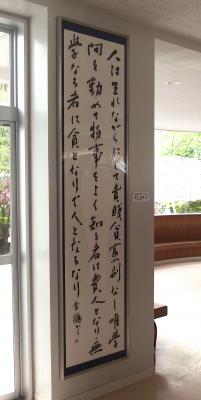 人は生れながらにして貴賤貧富の別なし唯学
問を勤めて物事をよく知る者は貴人となり無
学なる者は貧となり下人となるなり